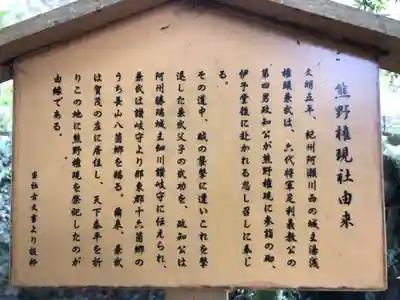 熊野権現社由来
文明五年、紀州阿瀬川西の城主湯浅
権頭兼武は、六代将軍足利義教公の
第四男政知公が熊野権現に来詣の砌、
伊予堂後に赴かれる思し召しに奉じ
る。
その道中、賊の襲撃に遭いこれを撃
退した兼武父子の武功を、政知公は
阿州勝瑞城主細川讃岐守に伝えられ、
兼武は讃岐守より那東郡十六箇郷の
うち長山八箇郷を賜る。爾来、兼武
は賀茂の庄に居住し、天下泰平を祈
りこの地に熊野権現を祭祀したのが
由縁である。
当社古文書より抜粋